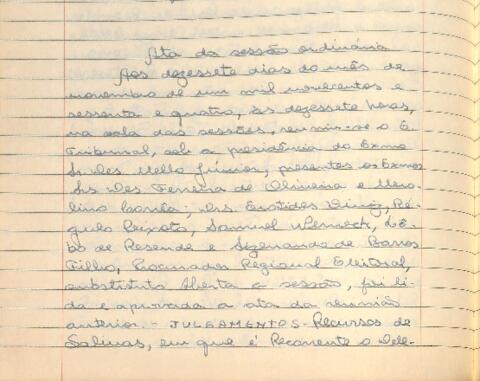 Ata da sessão ordinária
Aos dezessete dias do mês de
novembro de um mil novecentos e
sessenta e quatro, às dezessete horas,
na sala das sessões, reuniu-se o E.
Tribunal, sob a presidência do Exmo
Sr. Des. Mello Júnior, presentes os Exmos
Srs Des Ferreira de Oliveira e Mero-
lino Corrêa; Drs. Eurotides Diniz, Ré-
gulo Peixoto, Samuel Werneck, Lô-
bo de Resende e Sizenando de Barros
Filho, Procurador Regional Eleitoral,
substituto Aberta a sessão, foi li-
da e aprovada a ata da reunião
anterior. - JULGAMENTOS - Recursos de
Salinas, em que é Recorrente o Dele-